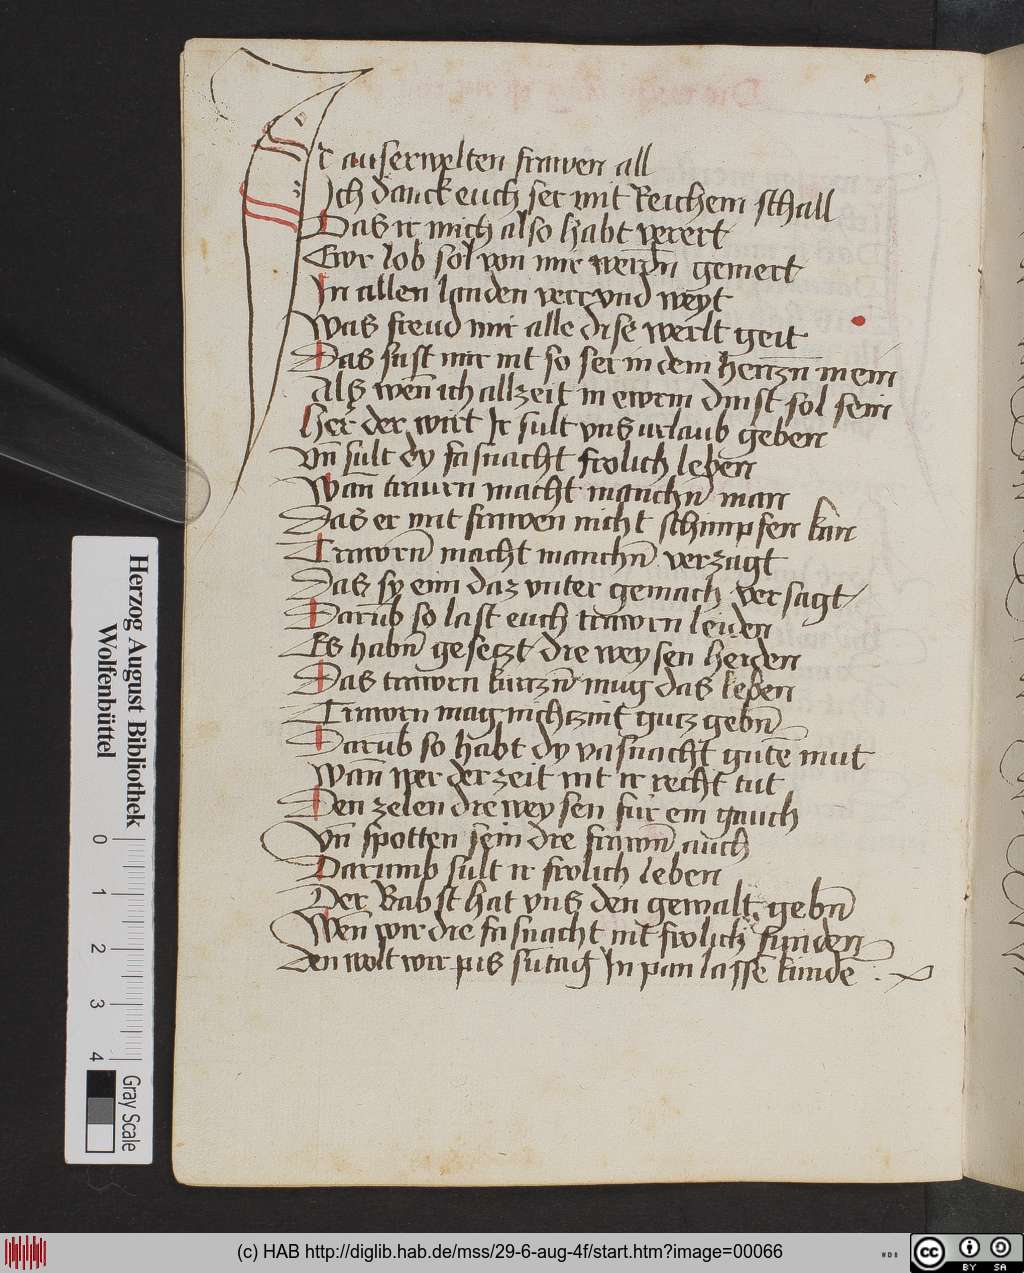 Ir auserwelten frawen all
Ich danck euch ser mit Reichem schall
Das ir mich also habt verert
Ewr lob sol von mir werdn̄ gemert
In allen landen verr vnd weyt
Was freud mir alle dise werlt geit
Das sust mir nit so ser in dem herrzn mein
Alß wen̄ ich allzeit in ewrm dinst sol sein
Her der wirt Ir sult vnß urlaub geben
Vn̄ sult dy fasnacht frolich leben
Wan̄ traurn macht manchn̄ man
Das er mit frawen nicht schimpfen kan
Trawrn̄ macht manchn̄ verzagt
Das sy enn daz vnter gemach versagt
Darūb so last euch trawrn leiden
Es habn̄ gesetzt die weysen heiden
Das trawrn kurrzn̄ mug das leben
Trawrn mag nichtznit gutz gebn̄
Darūb so habt dy vasnacht gutē mut
Wan̄ wer der zeit nit ir recht tut
Den zelen die weysen fur ein gauch
Vn̄ spotten sein die frawn̄ auch
Darumb sult ir frolich leben
Der Babst hat vnß den gewalt gebn̄
Wen̄ wir die fasnacht nit frolich finden
Den wolt wir pis sūtag In pan lassē kündē
Herzog August Bibliothek
Wolfenbüttel
0 1 2 3 4
Gray Scale
(c) HAB http://diglib.hab.de/mss/29-6-aug-4f/start.htm?image=00066
WDB
cc BY SA